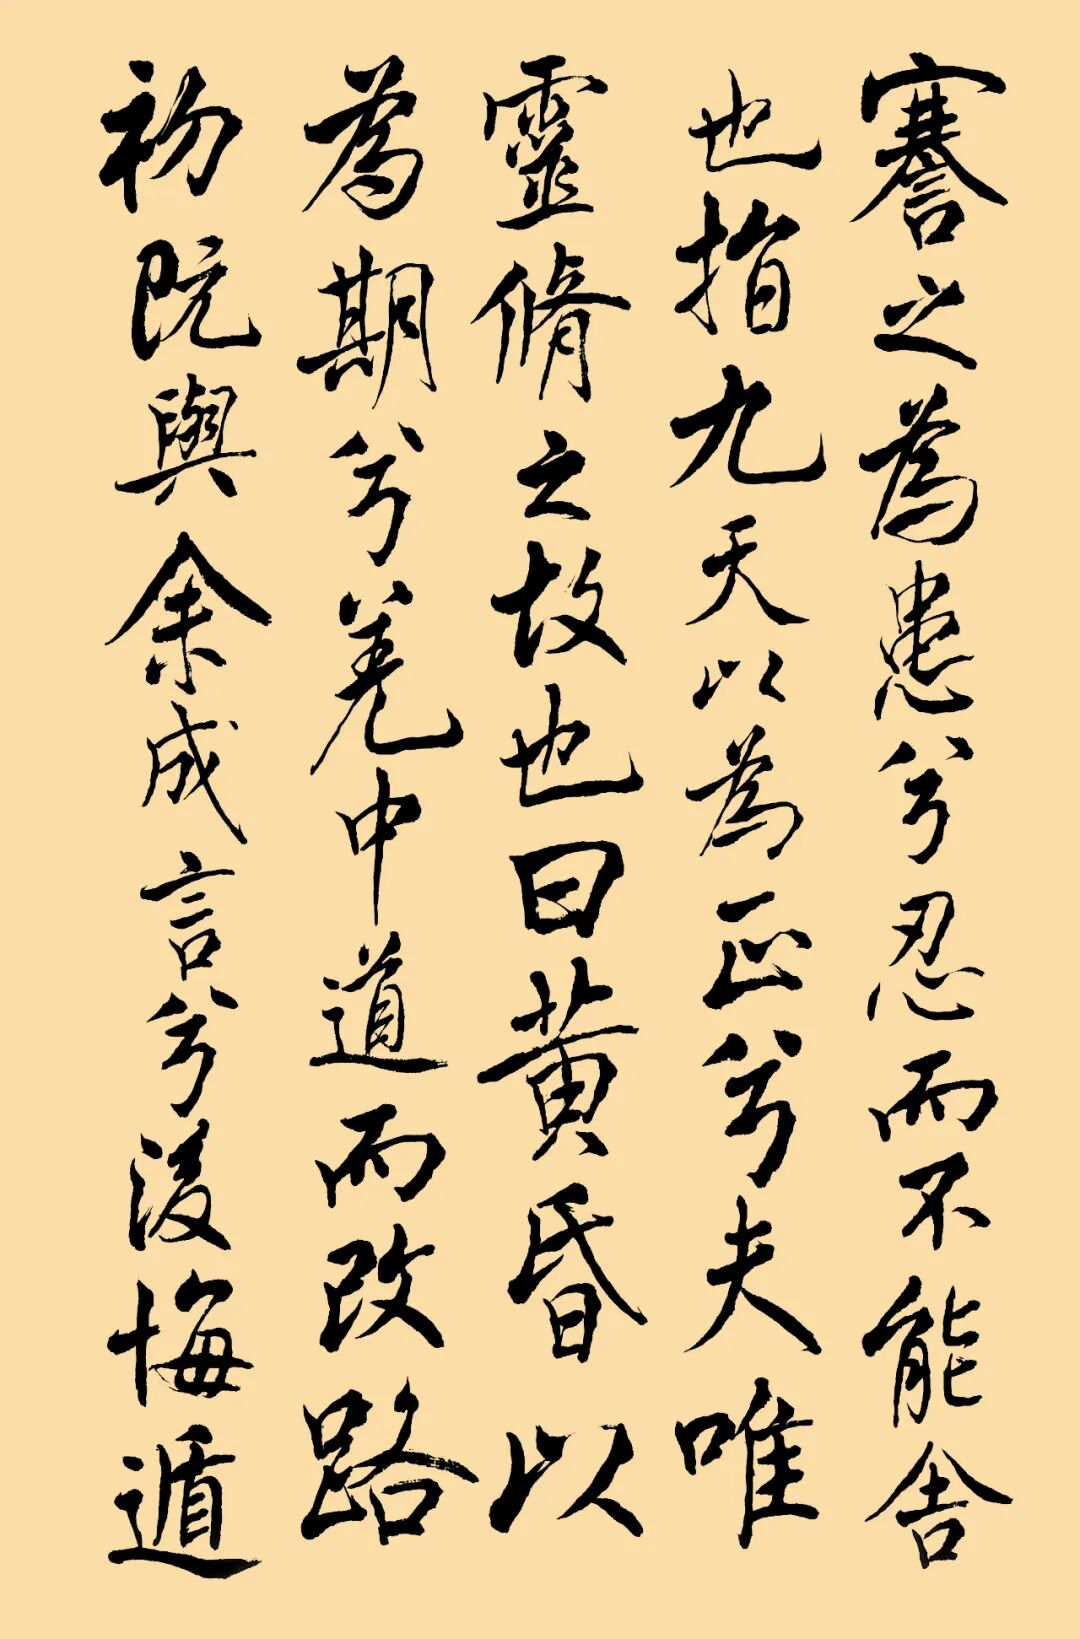 謇之為患兮忍而不能舍
也指九天以為正兮夫唯
靈脩之故也曰黄昏以
為期兮羌中道而改路
初既與余成言兮後悔遁